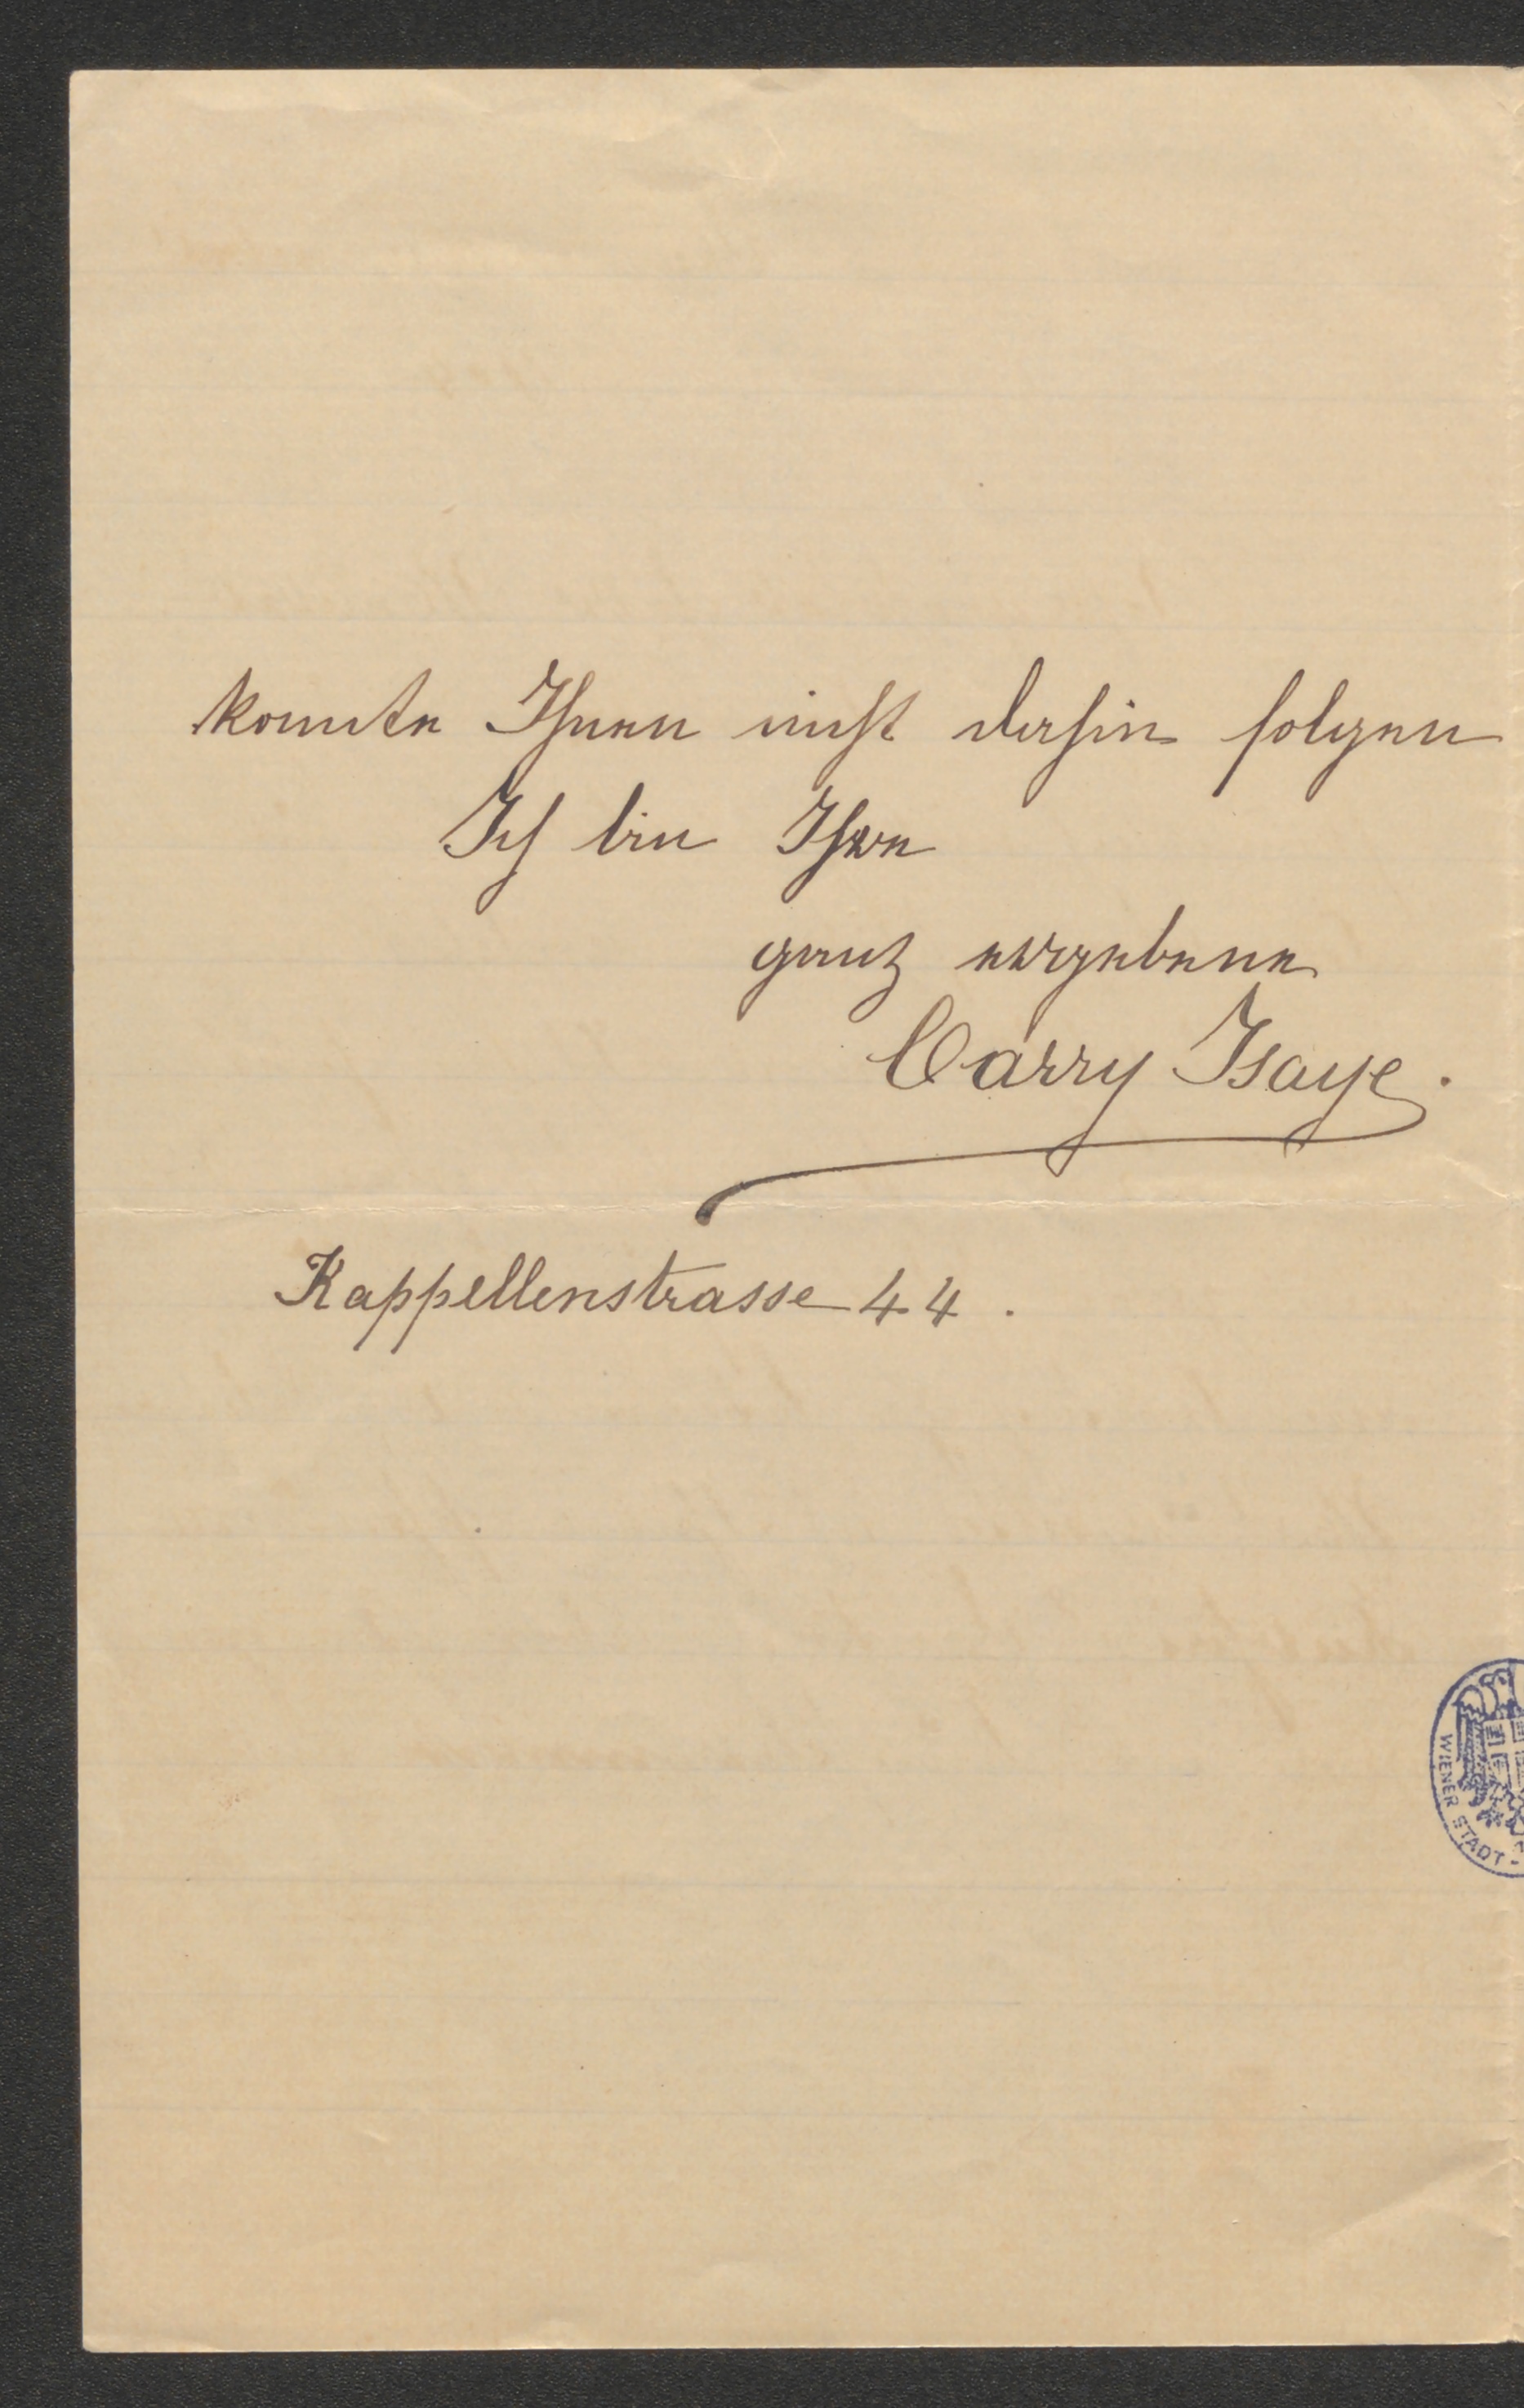 konnte Ihnen nicht dahin folgen
Ich bin Ihre
ganz ergebene
Carry Isaye.
Kappellenstrasse 44.
WIENER STADT-